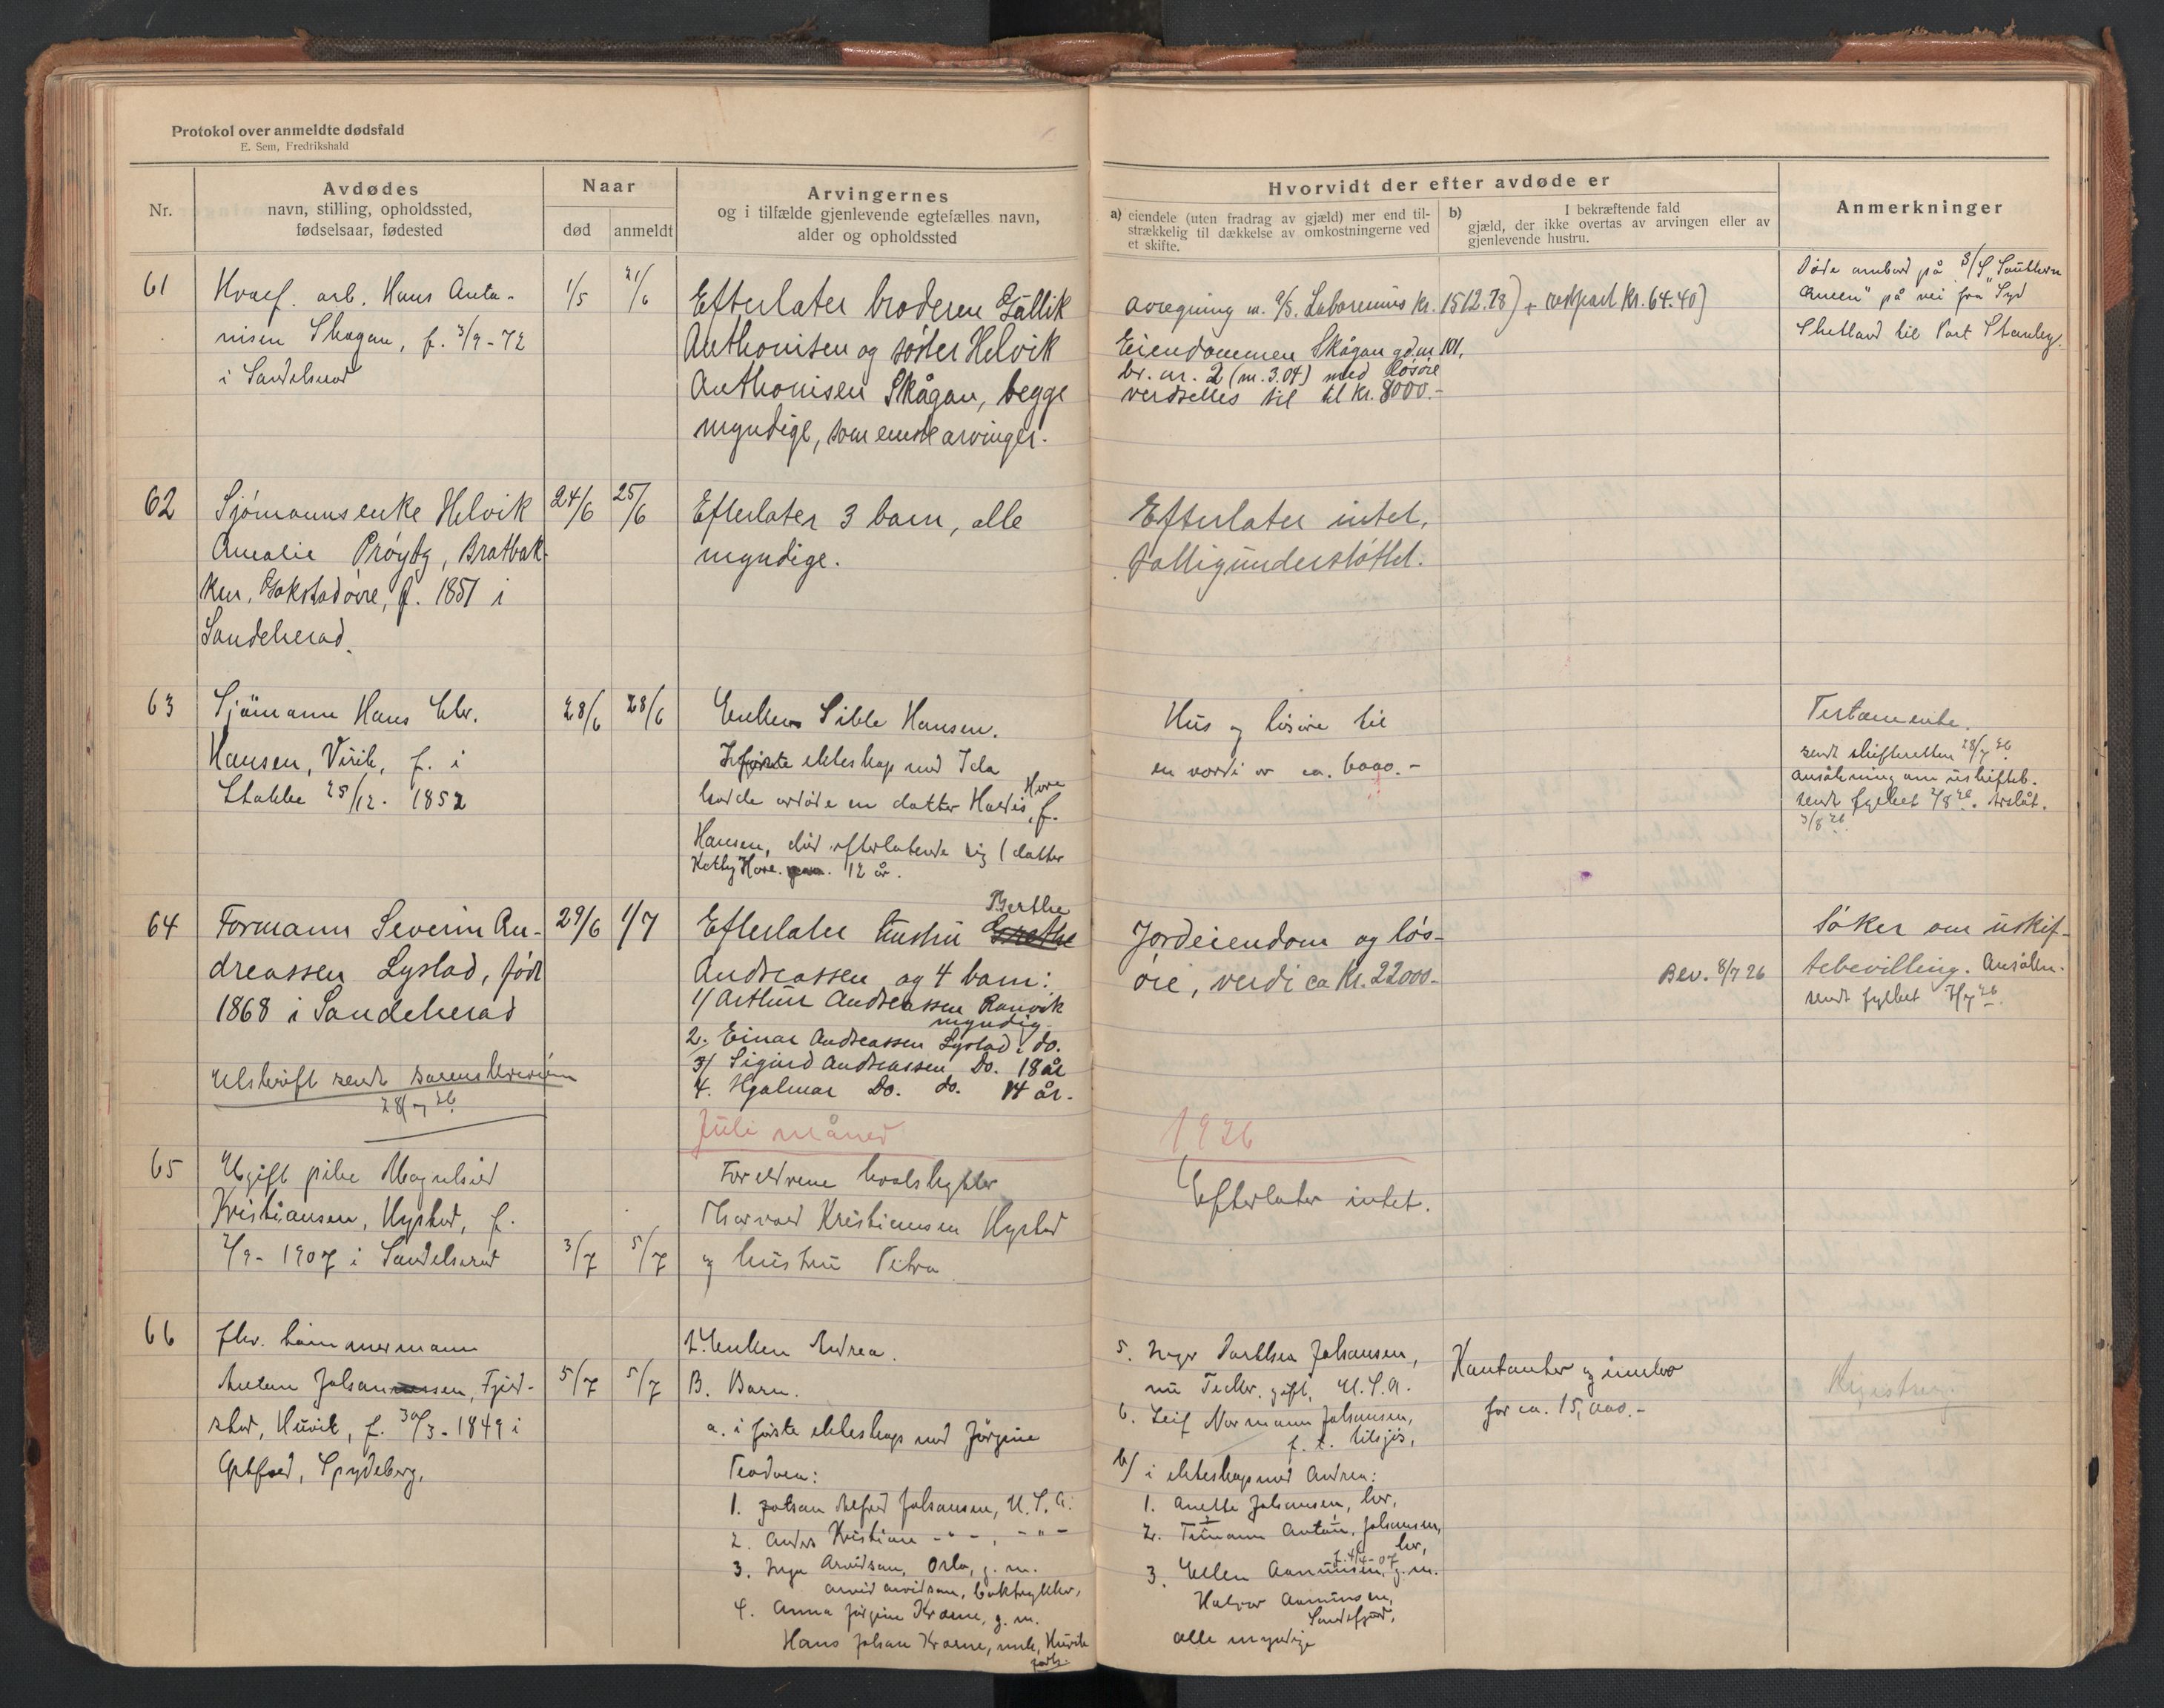 Protokol over anmeldte dødsfald
E. Sem, Fredrikshald
Nr.
Avdødes
navn, stilling, opholdssted,
fødselsaar, fødested
Naar
død
anmeldt
Arvingernes
og i tilfælde gjenlevende egtefælles navn,
alder og opholdssted
Hvorvidt der efter avdøde er
a) eiendele (uten fradrag av gjæld) mer end til-
strækkelig til dækkelse av omkostningerne ved
et skifte.
b) I bekræftende fald
gjæld, der ikke overtas av arvingen eller av
gjenlevende hustru.
Anmerkninger
61
Hvalf. arb. Hans Anto-
nisen Skagan, f. 3/9-72
i Sandeherad
1/5
21/6
Efterlater broderen Gullik
Anthonisen og søster Helvik
Anthonisen Skågan, begge
myndige, som eneste arvinger.
avregning m. a/s. Laboremus kr. 1512.78) + restpart kr. 64.40)
Eiendommen Skågan gd.nr 101,
br. nr. 2 (m. 3.04) med løsøre
verdsettes til til kr. 8000.-
Døde ombord på S/S "Southern
Queen" på vei fra Syd
Shetland til Port Stanley.
62
Sjømannsenke Helvik
Amalie Prøytz, Bratbak-
ken, Gokstadøvre, f. 1851 i
Sandeherad.
24/6
25/6
Efterlater 3 barn, alle
myndige.
Efterlater intet.
Fattigunderstøttet.
63
Sjömann Hans Chr.
Hansen, Virik, f. i
Stokke 25/12. 1852
28/6
28/6
Enken Sille Hansen.
I første ekteskap med Ida
hadde avdöde en datter Hardis Hove, f.
Hansen, död efterlatende sig 1 datter
Kathy Hove. 12 år.
Hus og lösöre til
en verdi av ca. 6000.-
Testamente.
sendt skifteretten 28/7 26
Ansökning om uskifteb.
sendt fylket 2/8 26. Avslåt.
3/8 26
64
Formann Severin An-
dreassen Lystad, født
1868 i Sandeherad
Utskrift sendt sorenskriveren
28/7 26
29/6
1/7
Efterlater hustru Grethe Berthe
Andreassen og 4 barn:
1/ Arthur Andreassen Ranvik
myndig
2. Einar Andreassen Lystad. do.
3/ Sigurd Andreassen Do. 18 år
4. Hjalmar Do. do. 14 år.
Jordeiendom og løs-
øre, verdi ca kr. 22000.-
Bev. 8/7 26
Søker om uskif-
tebevilling. Ansøkn.
sendt fylket 7/7 26
Juli måned
1926
65
Ugift pike Magnhild
Kristiansen, Nystad, f.
2/9-1907 i Sandeherad
3/7
5/7
Foreldrene hvalskytter
Thorvald Kristiansen Nystad
og hustru Petra
Efterlater intet.
66
fhv. tömmermann
Anton Johannessen, Fjeld-
stad, Huvik, f. 30/3-1849 i
Spydeberg.
5/7
5/7
A. Enken Andrea.
B. Barn.
a. i første ekteskap med Jörgine
Teodora:
1. Johan Alfred Johansen, U.S.A.
2. Anders Kristian -"-, -"-
3. Inga Arvidson, Oslo, g. m.
Arvid Arvidson, boktrykker,
4. Anna Jörgine Kraane, g. m.
Hans Johan Kraane, Huvik
5. Inger Johansen,
nu gift, U.S.A.
6. Leif Normann Johansen,
f. t. tilsjös,
b) i ekteskap med Andrea:
1. Anette Johansen, her,
2. Anton Johansen,
her,
f. 4/4-07
3. Ellen Aanunsen, g. m.
Halvor Aanunsen,
Sandefjord,
alle myndige
Kontanter og innbo
for ca. 15,000.-